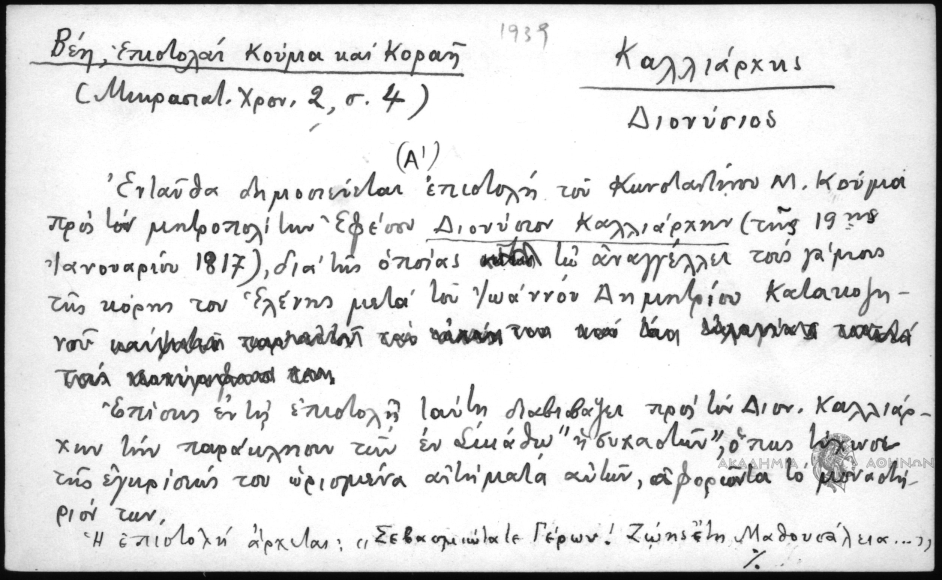 1939
Βέη, Ἐπιστολαὶ Κούμα καὶ Κοραῆ
(Μικρασιατ. Χρον. 2, σ. 4)
Καλλιάρχης
Διονύσιος
(Α')
Ἐνταῦθα δημοσιεύεται ἐπιστολὴ τοῦ Κωνσταντίνου Μ. Κούμα
πρὸς τὸν μητροπολίτην Ἐφέσου Διονύσιον Καλλιάρχην (τῆς 19ης
Ἰανουαρίου 1817), διὰ τῆς ὁποίας τῷ ἀναγγέλλει τοὺς γάμους
τῆς κόρης του Ἑλένης μετὰ τοῦ Ἰωάννου Δημητρίου Κατακοζη-
νοῦ
Ἐπίσης ἐν τῇ ἐπιστολῇ ταύτῃ διαβιβάζει πρὸς τὸν Διον. Καλλιάρ-
χην τὴν παράκλησιν τῶν ἐν "ἡσυχαστῶν", ὅπως τύχωσι
τῆς ἐγκρίσεώς του ὡρισμένα αἰτήματα αὐτῶν, ἀφορῶντα τὸ μοναστή-
ριόν των.
Ἡ ἐπιστολὴ ἄρχεται: "Σεβασμιώτατε Γέρων! Ζώῃς ἔτη Μαθουσάλεια...",
./.
ΑΚΑΔΗΜΙΑ ΑΘΗΝΩΝ